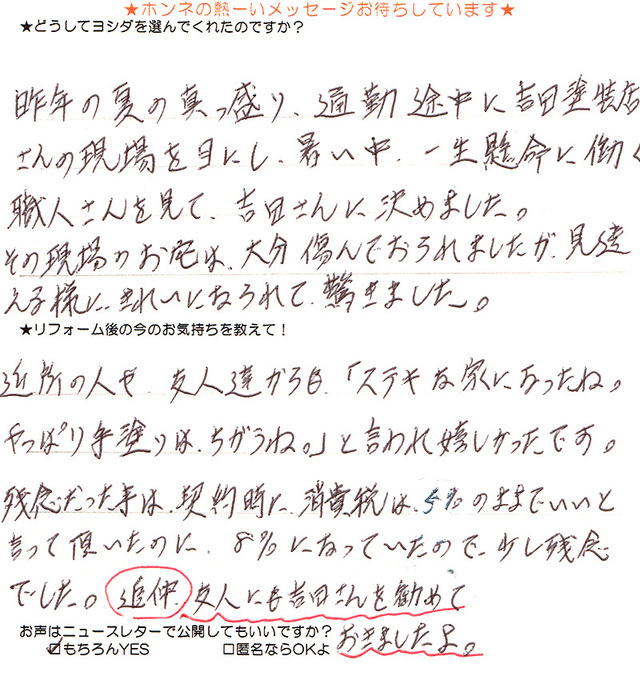 ★ホンネの熱ーいメッセージお待ちしています★
★どうしてヨシダを選んでくれたのですか？
昨年の夏の真っ盛り、通勤途中に吉田塗装店
さんの現場を目にし、暑い中、一生懸命に働く
職人さんを見て、吉田さんに決めました。
その現場のお宅は、大分傷んでおられましたが、見違
える様に、きれいになられて、驚きました。
★リフォーム後の今のお気持ちを教えて！
近所の人や、友人達からも、「ステキな家になったね。
やっぱり手塗りは、ちがうね。」と言われ嬉しかったです。
残念だった事は、契約時に、消費税は、5%のままでいいと
言って頂いたのに、8%になっていたので、少し残念
でした。追伸、友人にも吉田さんを勧めて
おきましたよ。
お声はニュースレターで公開してもいいですか？
☑もちろんYES □匿名ならOKよ